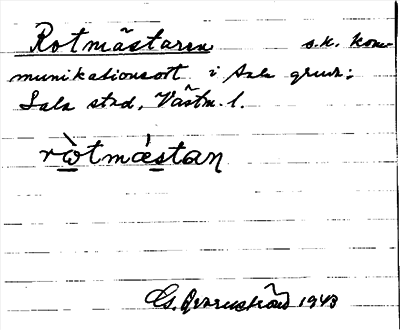 Rotmästaren s.k. kom-
munikationsort i Sala gruva;
Sala stad, Västm. l.
ròtmástan
1943